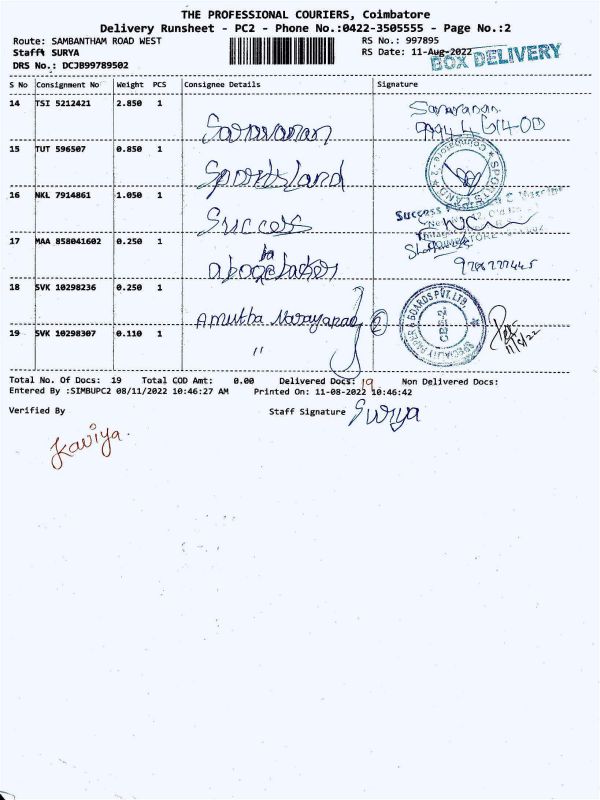 THE PROFESSIONAL COURIERS, Coimbatore
Delivery Runsheet - PC2 - Phone No.:0422-3505555 - Page No.:2
Route: SAMBANTHAM ROAD WEST
RS No.: 997895
Staff: SURYA
RS Date: 11-Aug-2022
BOX DELIVERY
DRS No.: DCJB99789502
S No Consignment No Weight PCS Consignee Details Signature
14 TSI 5212421 2.850 1 Saravanan Saravanan
15 TUT 596507 0.850 1 Sportsland
SPORTS LAND
16 NKL 7914861 1.050 1 Success
Success
17 MAA 858041602 0.250 1
18 SVK 10298236 0.250 1 Amutha Narayanan 2
SPECIALITY PAPER & BOARDS PVT. LTD.
CBE-2
19 SVK 10298307 0.110 1 "
11/8/22
Total No. Of Docs: 19 Total COD Amt: 0.00 Delivered Docs: 19 Non Delivered Docs:
Entered By :SIMBUPC2 08/11/2022 10:46:27 AM Printed On: 11-08-2022 10:46:42
Verified By Staff Signature Surya
Kaviya.